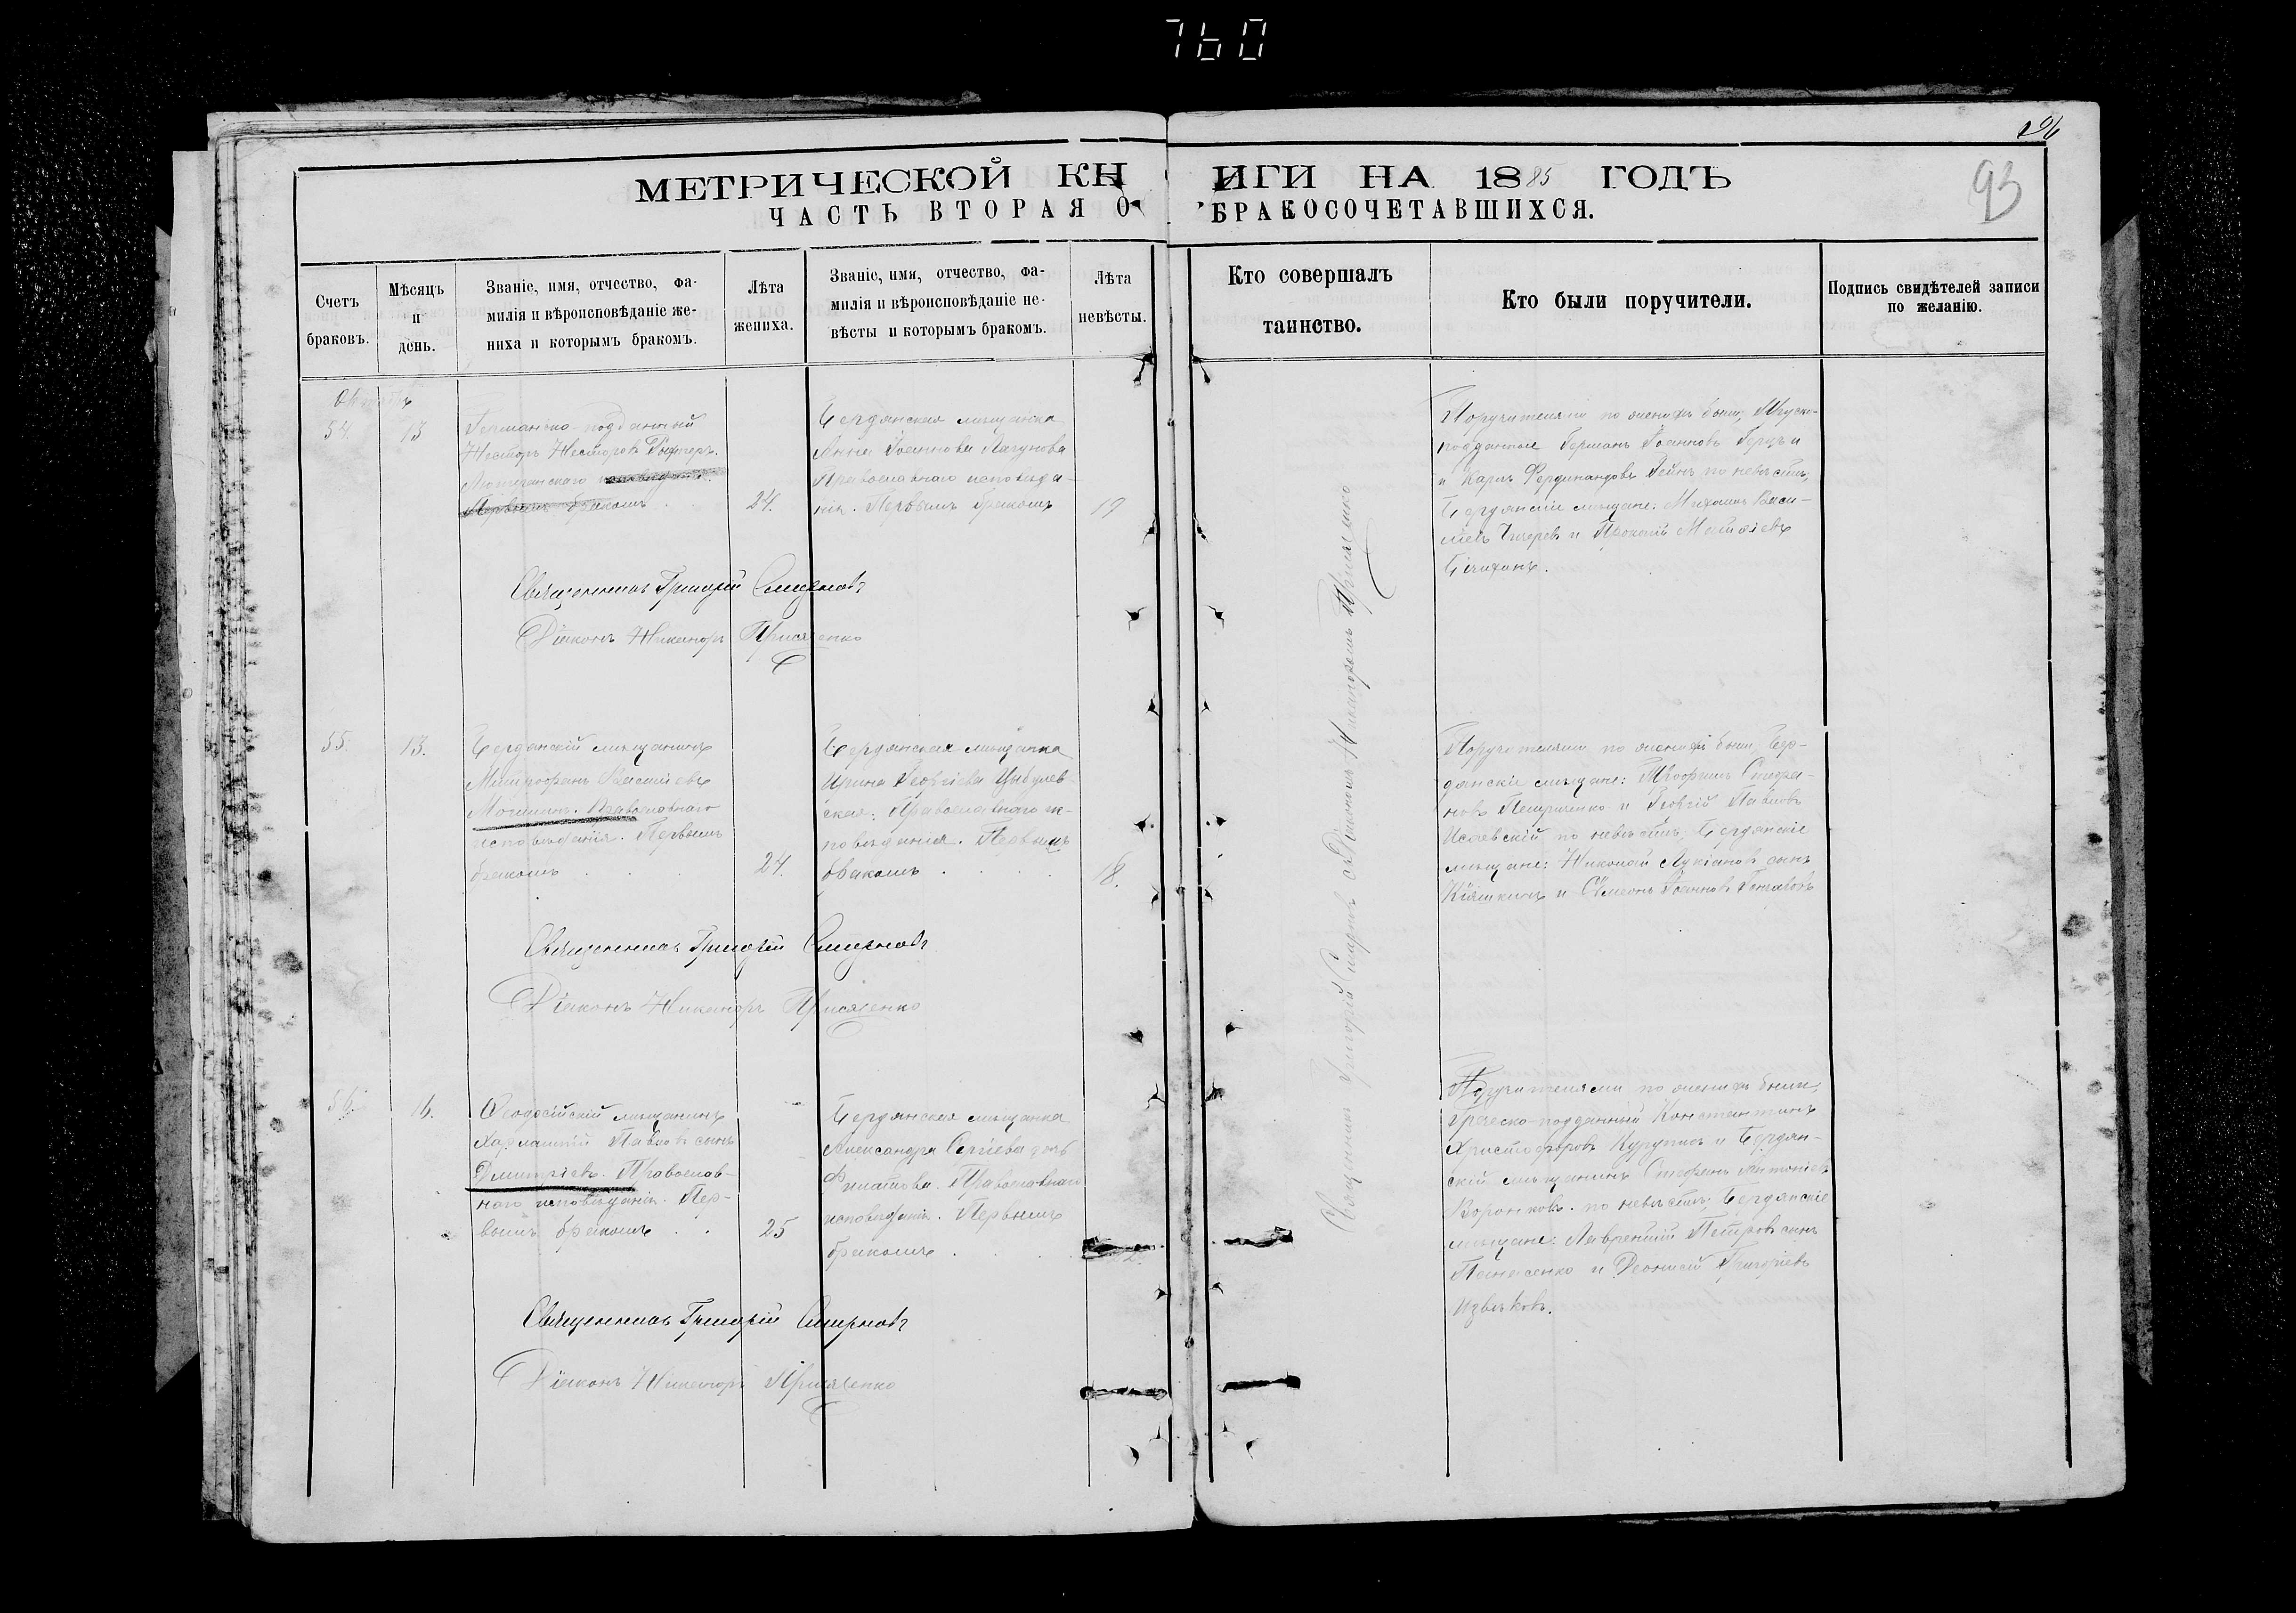 760
96
93
МЕТРИЧЕСКОЙ КНИГИ НА 1885 ГОДЪ
ЧАСТЬ ВТОРАЯ О БРАКОСОЧЕТАВШИХСЯ.
Счетъ
браковъ.
Мѣсяцъ
и
день.
Званіе, имя, отчество, фа-
милія и вѣроисповѣданіе же-
ниха и которымъ бракомъ.
Лѣта
жениха.
Званіе, имя, отчество, фа-
милія и вѣроисповѣданіе не-
вѣсты и которымъ бракомъ.
Лѣта
невѣсты.
Кто совершалъ
таинство.
Кто были поручители.
Подпись свидѣтелей записи
по желанію.
Октябрь
54.
13
Германско-подданный
Несторъ Несторовъ Рихтеръ.
Лютеранскаго
Первымъ бракомъ
24.
Бердянская мѣщанка
Анна Іоаннова Лагунова
Православнаго исповѣда-
нія. Первымъ бракомъ
19
Поручителями по женихѣ были, Прусско-
подданные Германъ Іоанновъ
и Карлъ Фердинандовъ Рейнъ по невѣстѣ,
Бердянскіе мѣщане: Михаилъ Васи-
ліевъ и Матѳіевъ
Священникъ Григорій Смирновъ
Діаконъ Никаноръ Присяженко
55.
13.
Бердянскій мѣщанинъ
Митрофанъ Василіевъ
Мошнинъ. Православнаго
исповѣданія. Первымъ
бракомъ
24.
Бердянская мѣщанка
Ирина Георгіева Цыбулев-
ская: Православнаго ис-
повѣданія. Первымъ
бракомъ
18.
Поручителями по женихѣ были, Бер-
дянскіе мѣщане: Трофимъ Стефа-
новъ Петриченко и Георгій Павловъ
Исаевскій по невѣстѣ; Бердянскіе
мѣщане: Николай Лукіановъ сынъ
Кіяшкинъ и Сѵмеонъ Іоанновъ
Священникъ Григорій Смирновъ
Діаконъ Никаноръ Присяженко
56.
16.
Ѳеодосійскій мѣщанинъ
Харлампій Павловъ сынъ
Дмитріевъ. Православ-
наго исповѣданія. Пер-
вымъ бракомъ
25
Бердянская мѣщанка
Александра Сергіева дочь
Филатова. Православнаго
исповѣданія. Первымъ
бракомъ
Поручителями по женихѣ были,
Греческо-подданный Константинъ
Христофоровъ Куруписъ и Бердян-
скій мѣщанинъ Стефанъ Антоніевъ
Воронковъ. по невѣстѣ; Бердянскіе
мѣщане: Лаврентій Петровъ сынъ
Панасенко и Деонисій Григоріевъ
Извѣковъ.
Священникъ Григорій Смирновъ
Діаконъ Никаноръ Присяженко
Священникъ Григорій Смирновъ съ Діакономъ Никаноромъ Присяженко